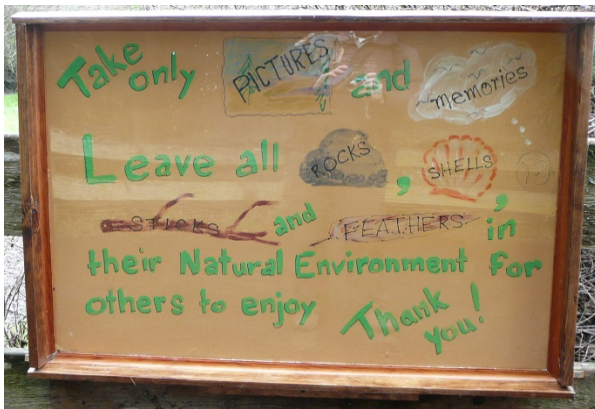 Take only PICTURES and memories
Leave all ROCKS, SHELLS,
STICKS and FEATHERS in
their Natural Environment for
others to enjoy Thank
you!